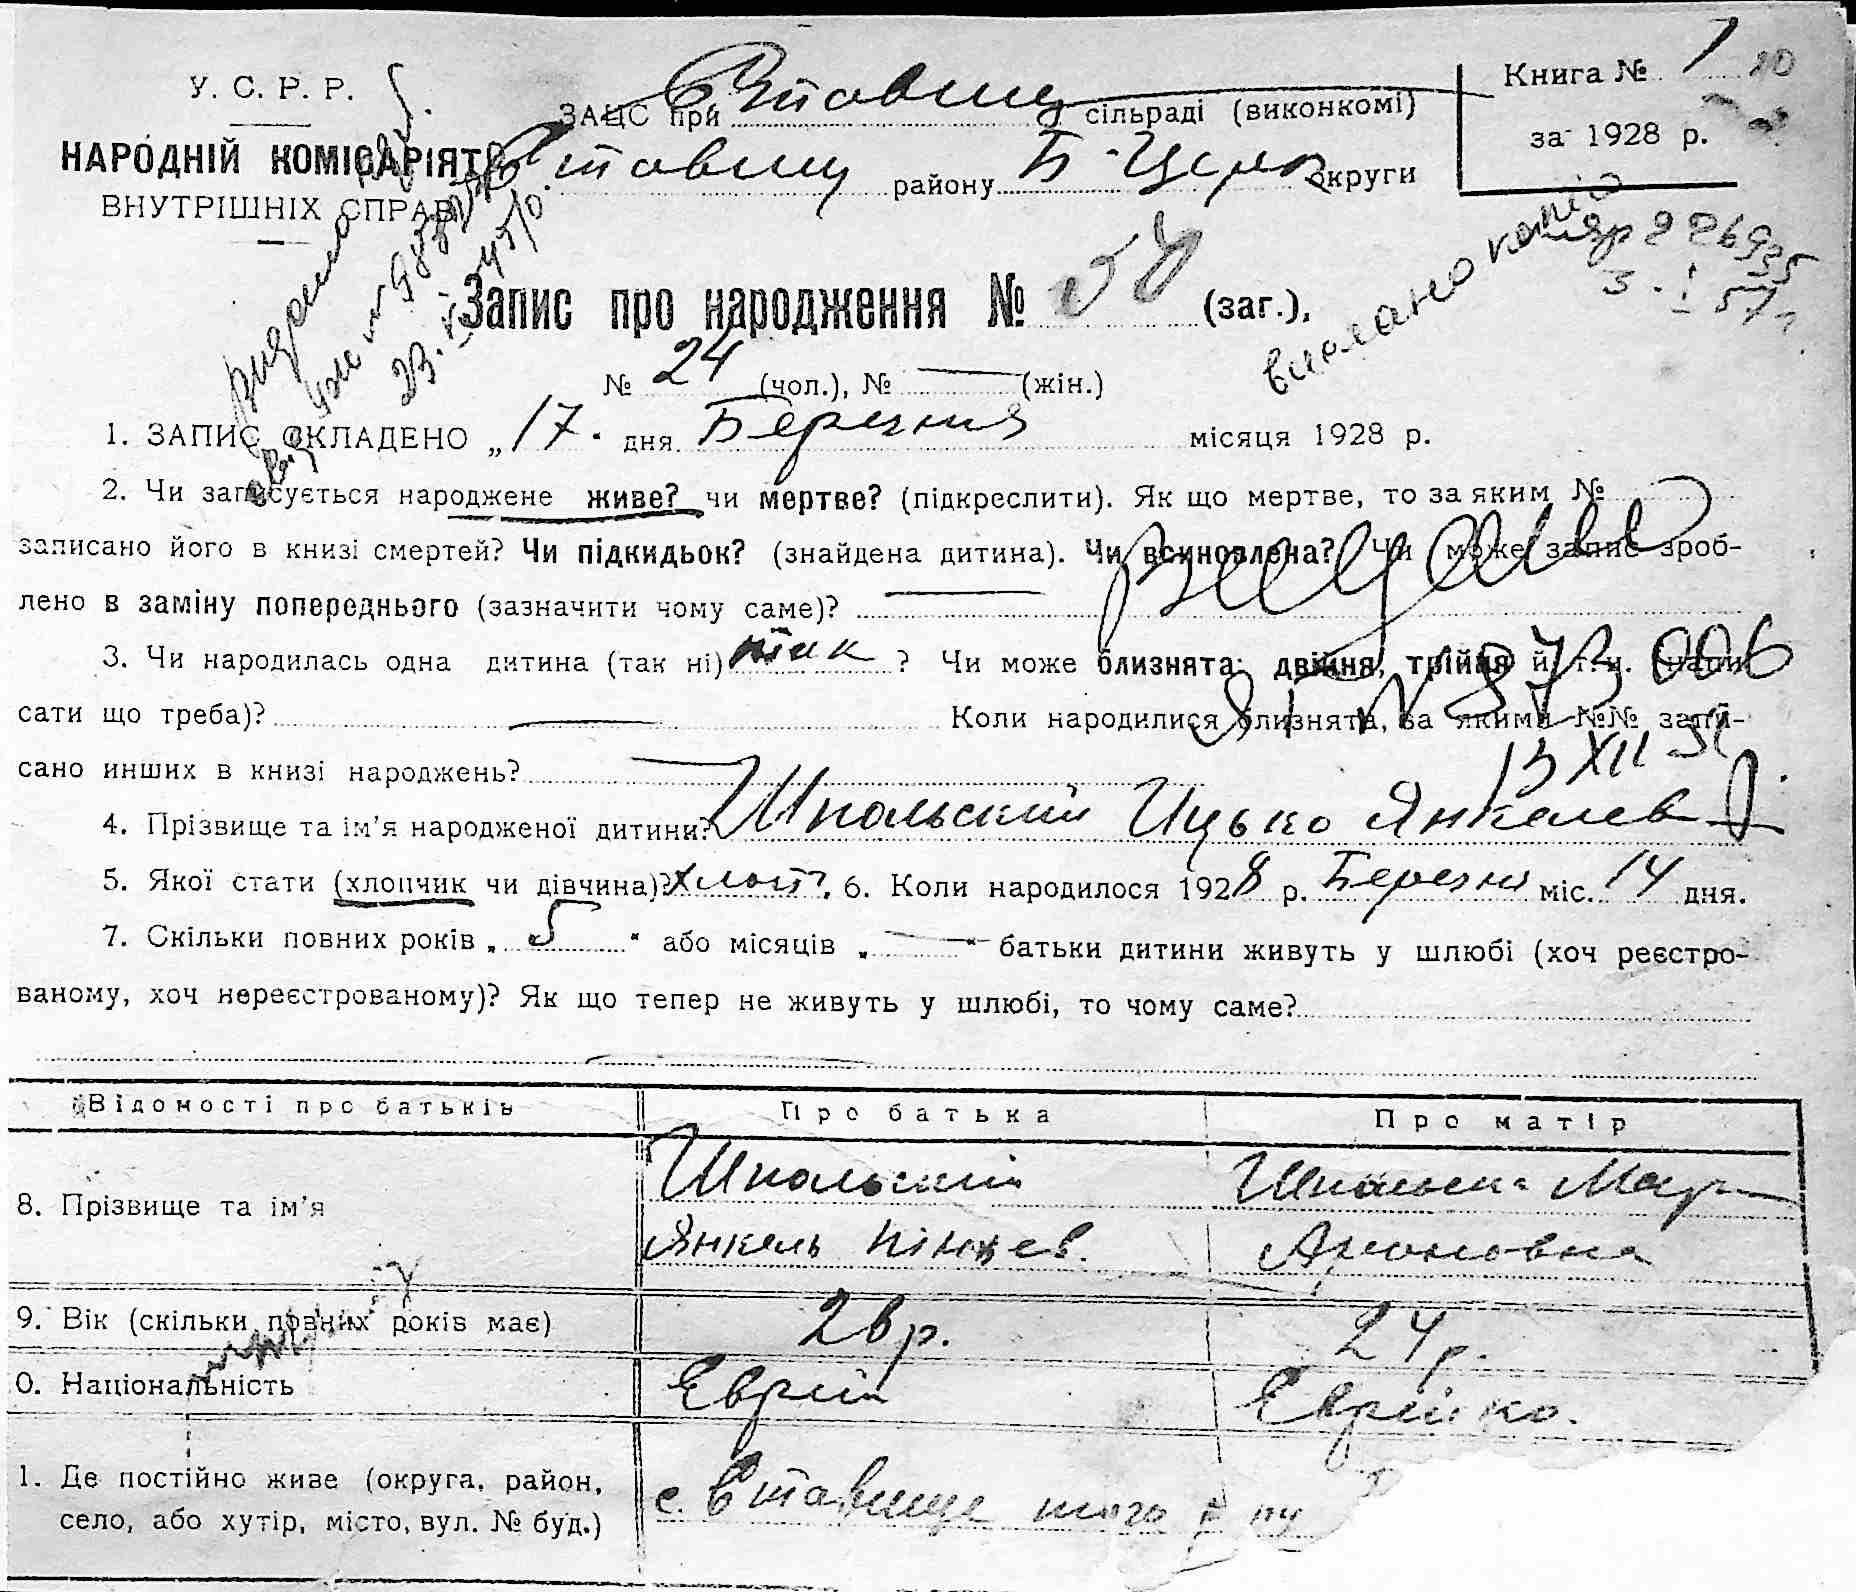 У. С. Р. Р.
НАРОДНІЙ КОМІСАРІЯТ
ВНУТРІШНІХ СПРАВ
ЗАЦС при Ставищ сільраді (виконкомі)
Ставищ району Б-Церк округи
Книга № 1
за 1928 р.
Запис про народження № (заг.),
видано копію
№ 24 (чол.), № — (жін.)
1. ЗАПИС СКЛАДЕНО „17" дня Березня місяця 1928 р.
2. Чи записується народжене живе? чи мертве? (підкреслити). Як що мертве, то за яким №
записано його в книзі смертей? Чи підкидьок? (знайдена дитина). Чи всиновлена? Чи може запис зроб-
лено в заміну попереднього (зазначити чому саме)? —
3. Чи народилась одна дитина (так ні) так ? Чи може близнята: двійня, трійня й т. и. (напи-
сати що треба)? — Коли народилися близнята, за якими №№ запи-
сано инших в книзі народжень? —
13 XII
4. Прізвище та ім'я народженої дитини? Шпольский Ицько Янкелев
5. Якої стати (хлопчик чи дівчина)? хлоп. 6. Коли народилося 1928 р. Березня міс. 14 дня.
7. Скільки повних років „5" або місяців „—" батьки дитини живуть у шлюбі (хоч реєстро-
ваному, хоч нереєстрованому)? Як що тепер не живуть у шлюбі, то чому саме?
—
Відомості про батьків Про батька Про матір
8. Прізвище та ім'я Шпольский
Янкель Ароновна
9. Вік (скільки повних років має) 26 р. 24 р.
0. Національність Єврей Єврейка.
1. Де постійно живе (округа, район,
село, або хутір, місто, вул. № буд.) с. Ставище